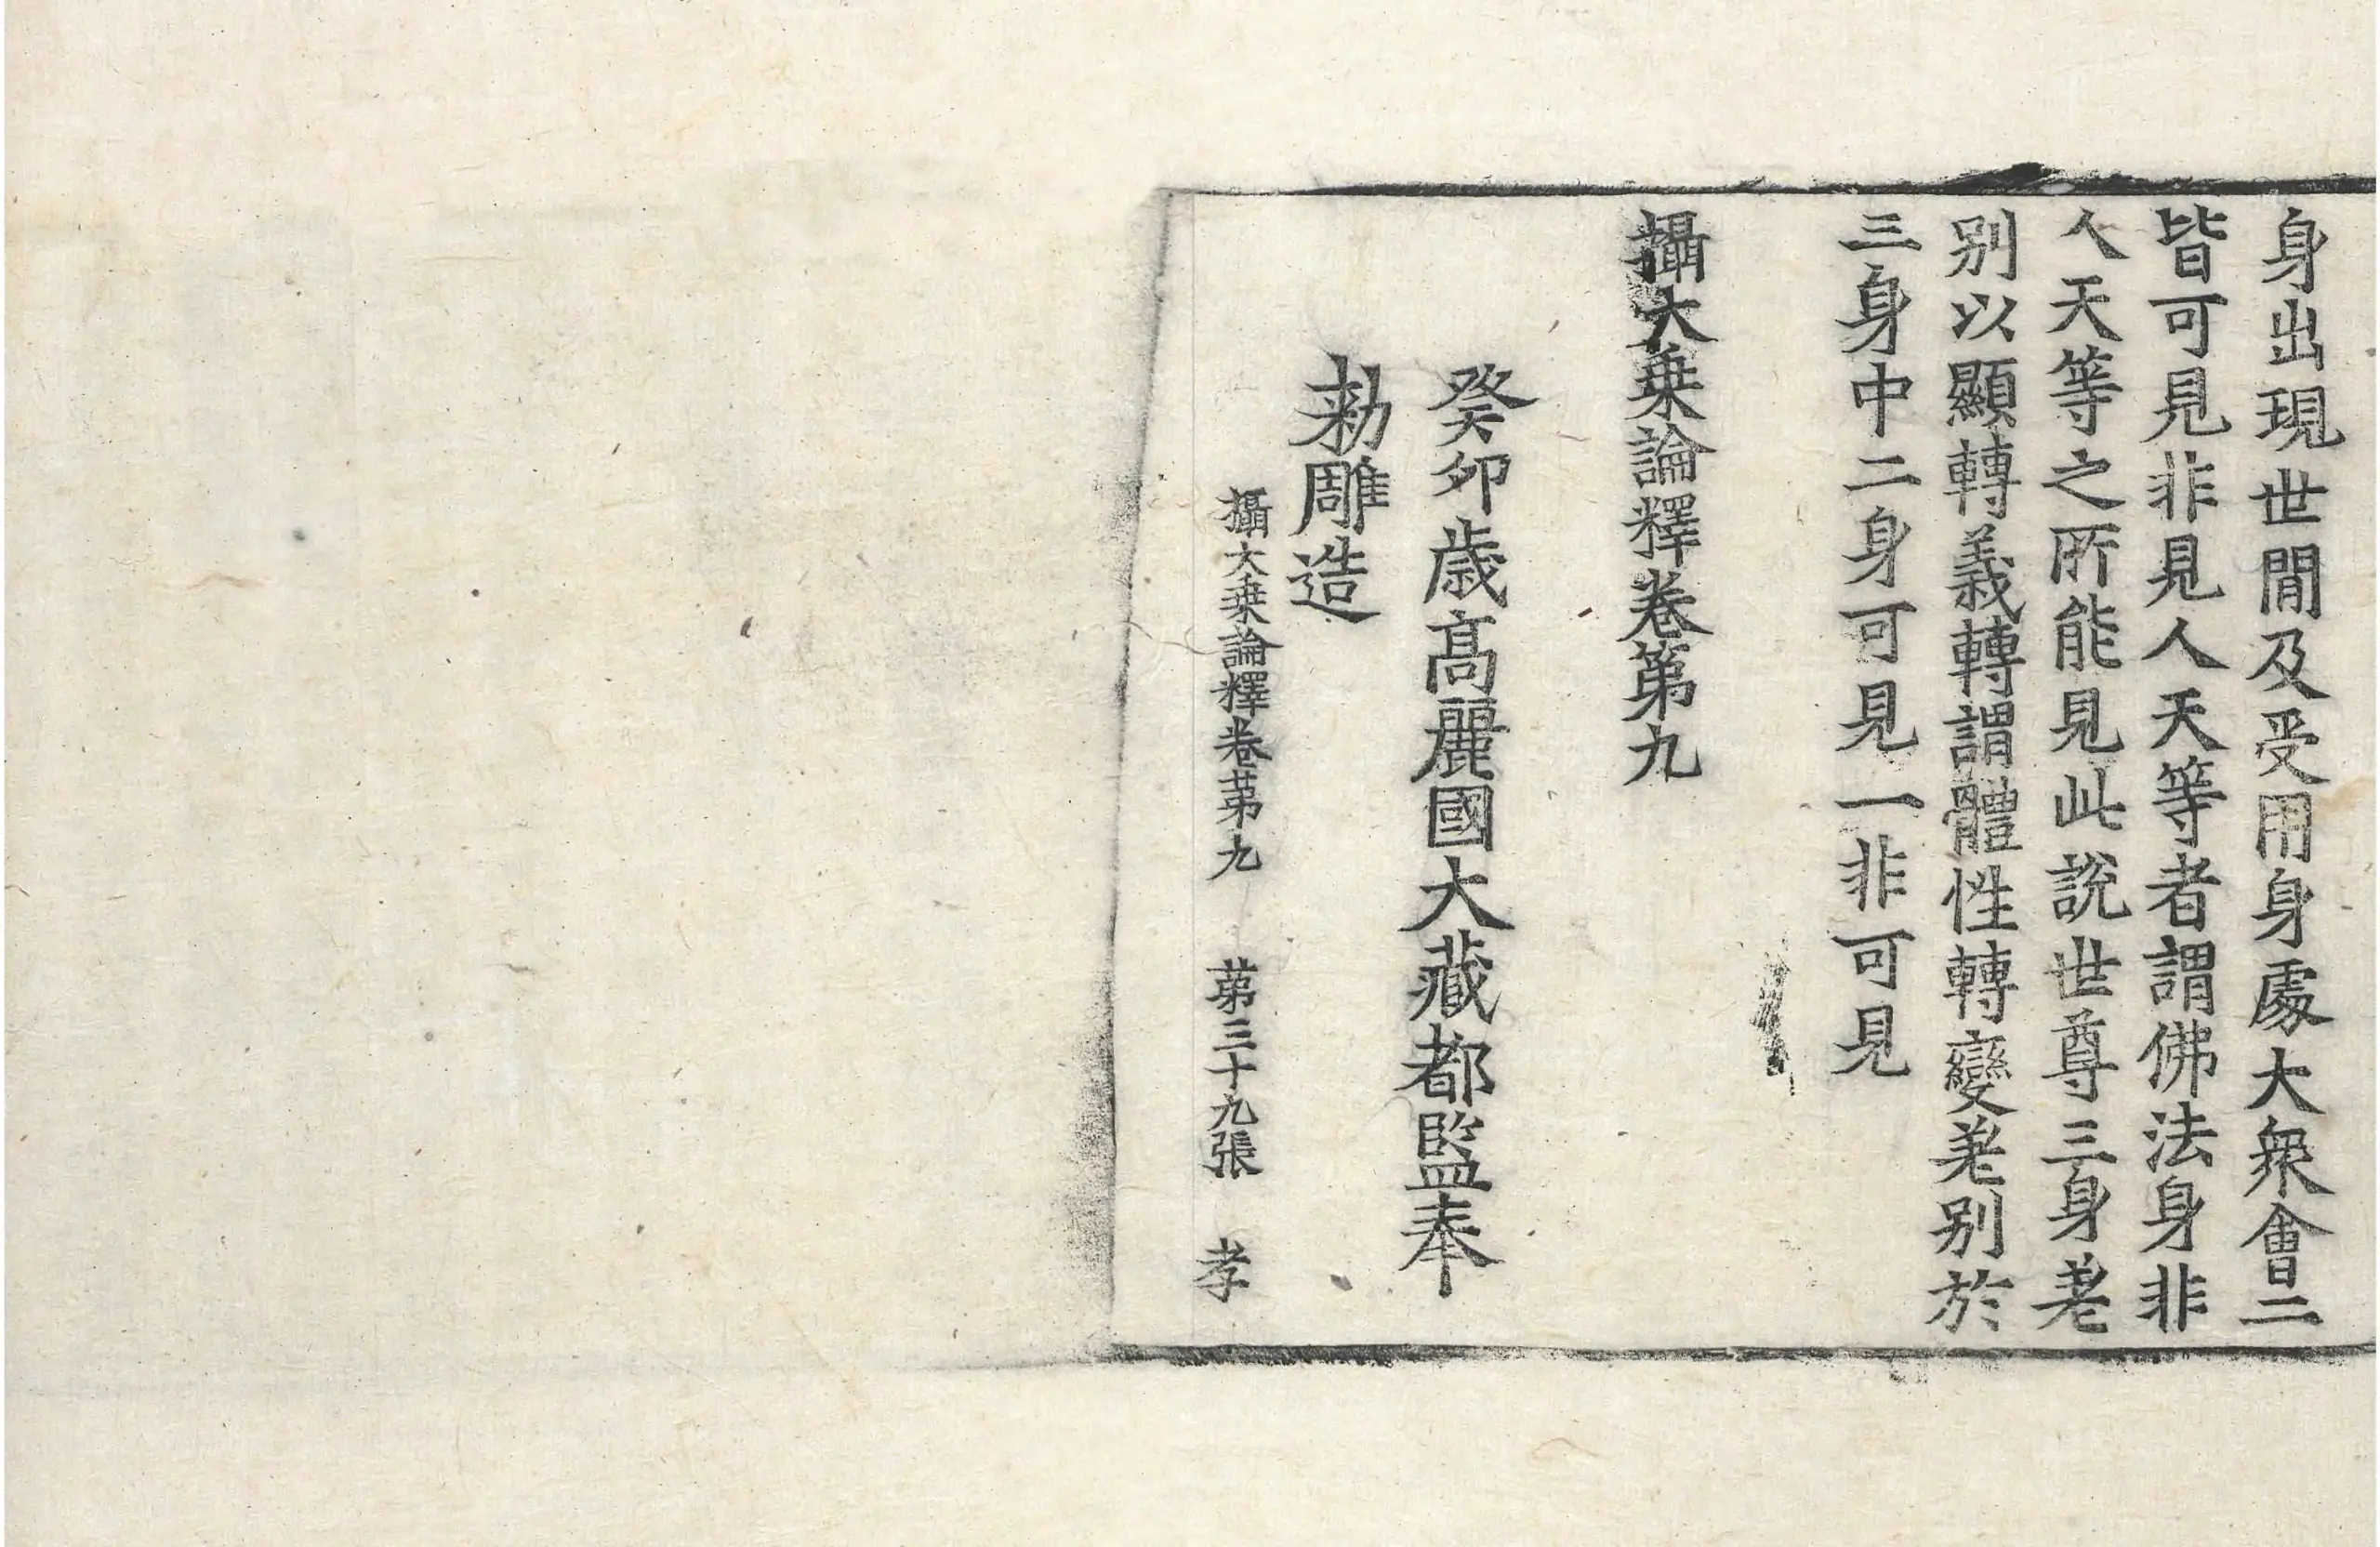 身出現世間及受用身處大衆會二
皆可見非見人天等者謂佛法身非
人天等之所能見此說世尊三身差
别以顯轉義轉謂體性轉變差别於
三身中二身可見一非可見
攝大乗論釋卷第九
癸卯歳髙麗國大藏都監奉
勑雕造
攝大乗論釋卷苐九 苐三十九張 孝